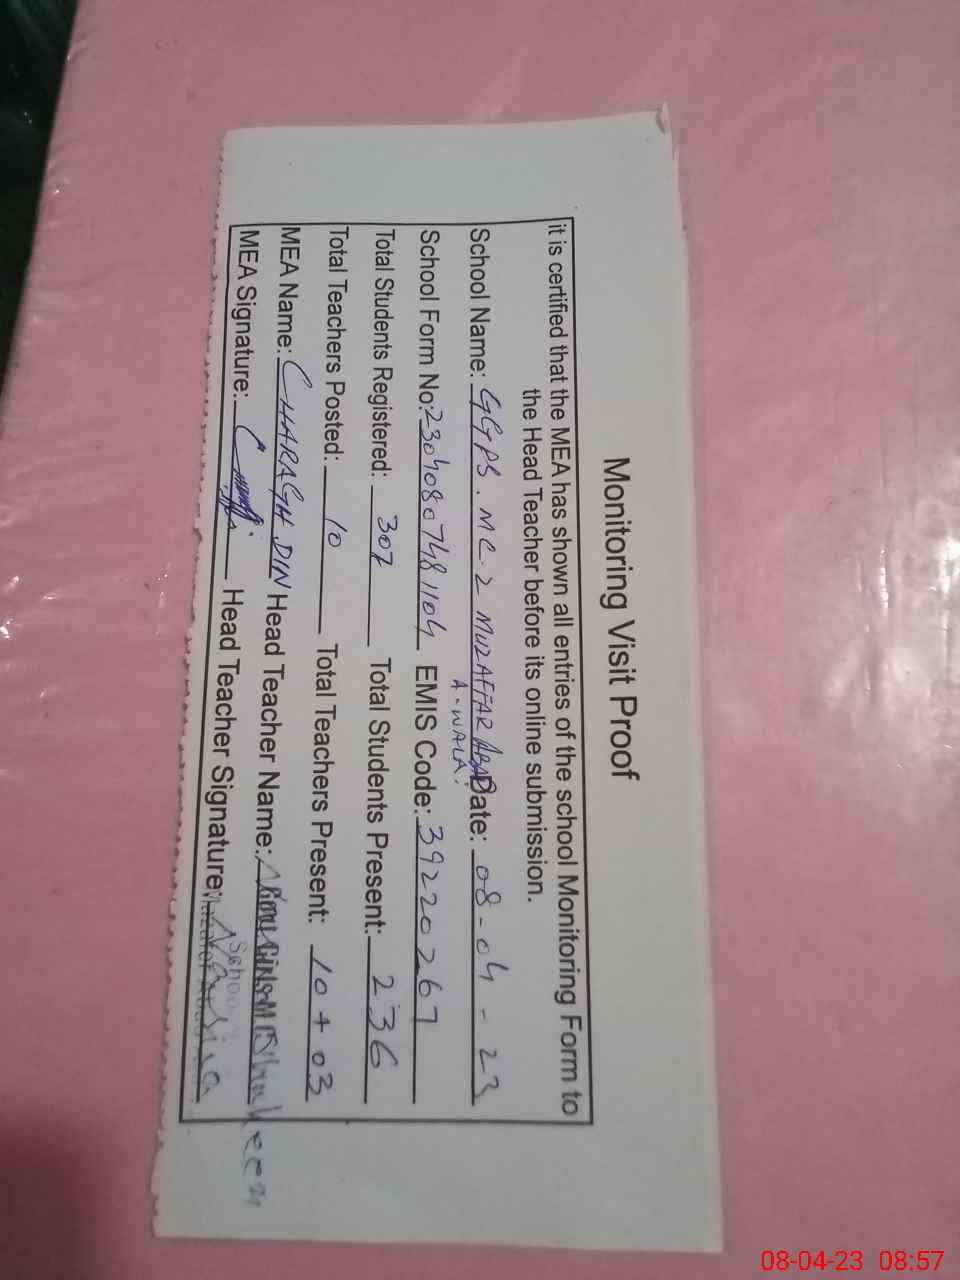 Monitoring Visit Proof
it is certified that the MEA has shown all entries of the school Monitoring Form to
the Head Teacher before its online submission.
School Name: GGPS. MC 2 MUZAFFAR ABAD Date: 08-04-23
A-WALA.
School Form No: 23040807481104 EMIS Code: 39220267
Total Students Registered: 307 Total Students Present: 236
Total Teachers Posted: 10 Total Teachers Present: 10+03
MEA Name: CHARAGH DIN Head Teacher Name: Shaheen
MEA Signature: Head Teacher Signature:
08-04-23 08:57